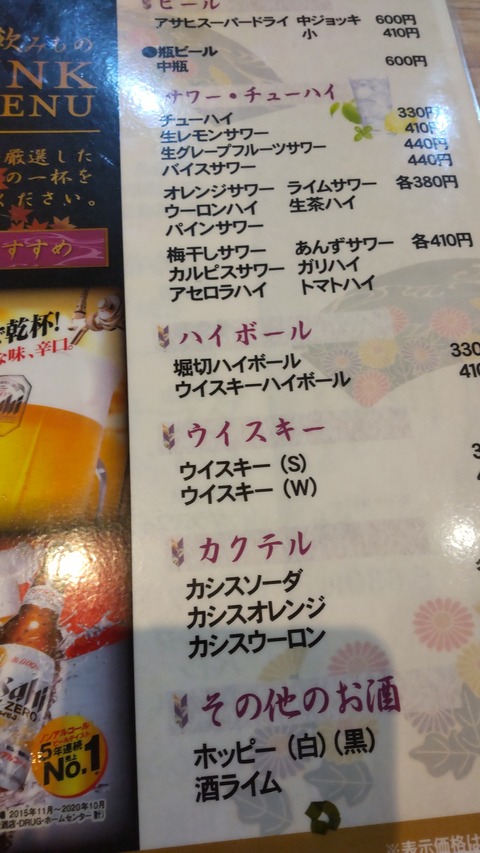 飲みもの
NK
ENU
厳選した
の一杯を
ください。
すすめ
で乾杯!
な味、辛口。
ビール
アサヒスーパードライ 中ジョッキ 600円
小 410円
●瓶ビール
中瓶 600円
サワー・チューハイ
チューハイ 330円
生レモンサワー 410円
生グレープフルーツサワー 440円
バイスサワー 440円
オレンジサワー ライムサワー 各380円
ウーロンハイ 生茶ハイ
パインサワー
梅干しサワー あんずサワー 各410円
カルピスサワー ガリハイ
アセロラハイ トマトハイ
ハイボール
堀切ハイボール 330
ウイスキーハイボール 410
ウイスキー
ウイスキー(S) 3
ウイスキー(W)
カクテル
カシスソーダ
カシスオレンジ
カシスウーロン
その他のお酒
ホッピー(白)(黒)
酒ライム
Asahi
ZERO
ノンアルコール
5年連続
売上
No.1
2015年11月〜2020年10月
酒店・DRUG・ホームセンター 計)
※表示価格は